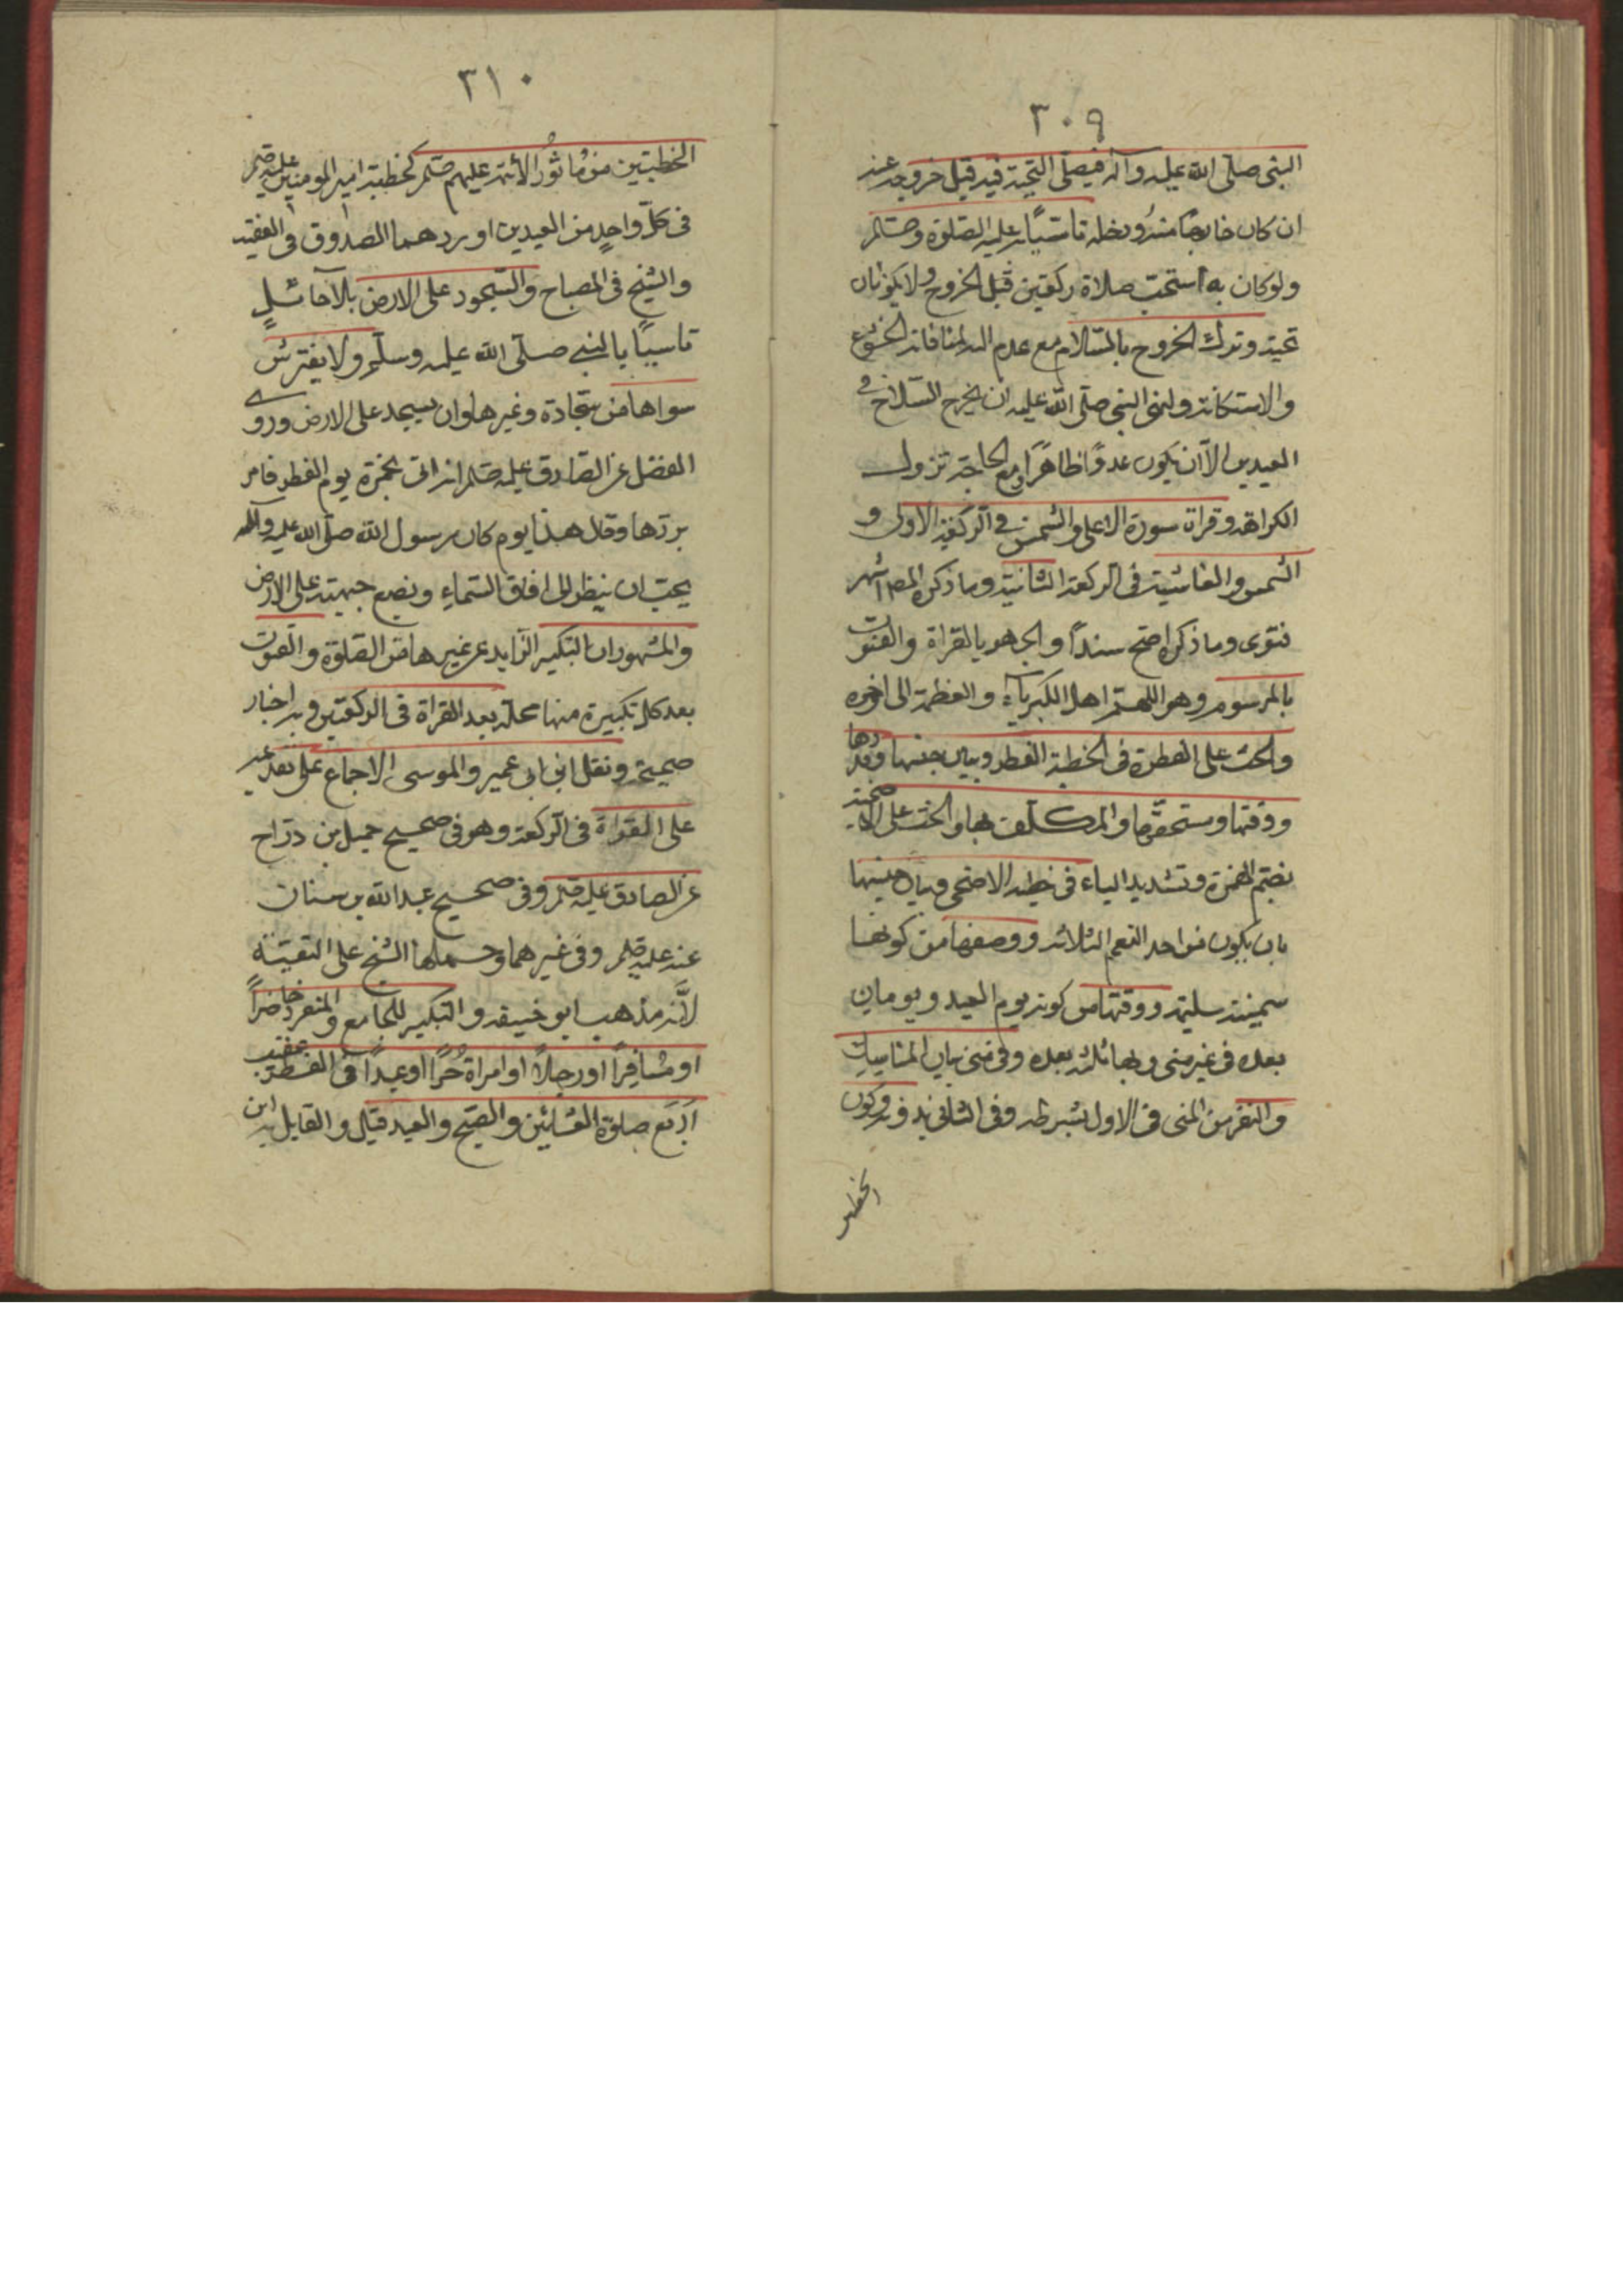 ٣٠٩
النبى صلى الله عليه وآله فيصلى التحية فيه قبل خروجه عنه
ان كان خارجا منه ودخله تاسيا به عليه الصلوة وصلم
ولو كان به استحب صلاة ركعتين قبل الخروج ولا يكونان
تحية وترك الخروج بالسلاح مع عدم العدو لمنافاته الخشوع
والاستكانة ولنهى النبى صلى الله عليه ان يخرج السلاح فى
العيدين الا ان يكون عدوا ظاهرا ومع الحاجة تزول
الكراهة وقراة سورة الاعلى والشمس فى الركعة الاولى و
الشمس والغاشية فى الركعة الثانية وما ذكره المص اشهر
فتوى وما ذكر اصح سندا والجهر بالقراة والقنوت
بالمرسوم وهو اللهم اهل الكبرياء والعظمة الى اخره
والحث على الفطرة فى الخطبة الفطر وبيان جنسها وقدرها
ووقتها ومستحقها والمكلف بها والحث على الاضحية
بضم الهمزة وتشديد الياء فى خطبة الاضحى وبيان جنسها
بان يكون من احد النعم الثلاثة ووصفها من كونها
سمينة سليمة ووقتها من كونه يوم العيد ويومان
بعده فى غير منى وبها ثلثة بعده وفى منى بيان المناسك
والنفر من المنى فى الاول بشرطه وفى الثانى بدونه وكون
الخطبه
٣١٠
الخطبتين من ماثور الائمة عليهم صلم كخطبة امير المومنين عليه صلم
فى كل واحد من العيدين اوردهما الصدوق فى الفقيه
والشيخ فى المصباح والسجود على الارض بلا حائل
تاسيا بالنبى صلى الله عليه وسلم ولا يفترش
سواها من سجادة وغيرها وان يسجد على الارض وروى
الفضل عن الصادق عليه صلم انه اتى بخمرة يوم الفطر فامر
بردها وقال هذا يوم كان رسول الله صلى الله عليه وآله
يحب ان ينظر الى افاق السماء ويضع جبهته على الارض
والمشهور ان التكبير الزايد عن غيرها من الصلوة والقنوت
بعد كل تكبيرة منها محله بعد القراة فى الركعتين وبه اخبار
صحيحة ونقل ابن ابى عمير والموسى الاجماع على تقديمه
على القراة فى الركعة وهو فى صحيح جميل بن دراج
عن الصادق عليه صلم وفى صحيح عبدالله بن سنان
عنه عليه صلم وفى غيرهما وحملها الشيخ على التقية
لانه مذهب ابو حنيفه والتكبير للجامع والمنفرد حاضرا
او مسافرا او رجلا او امراة حرا او عبدا فى الفطر عقيب
اربع صلوة العشائين والصبح والعيد قيل والقايل به ابن